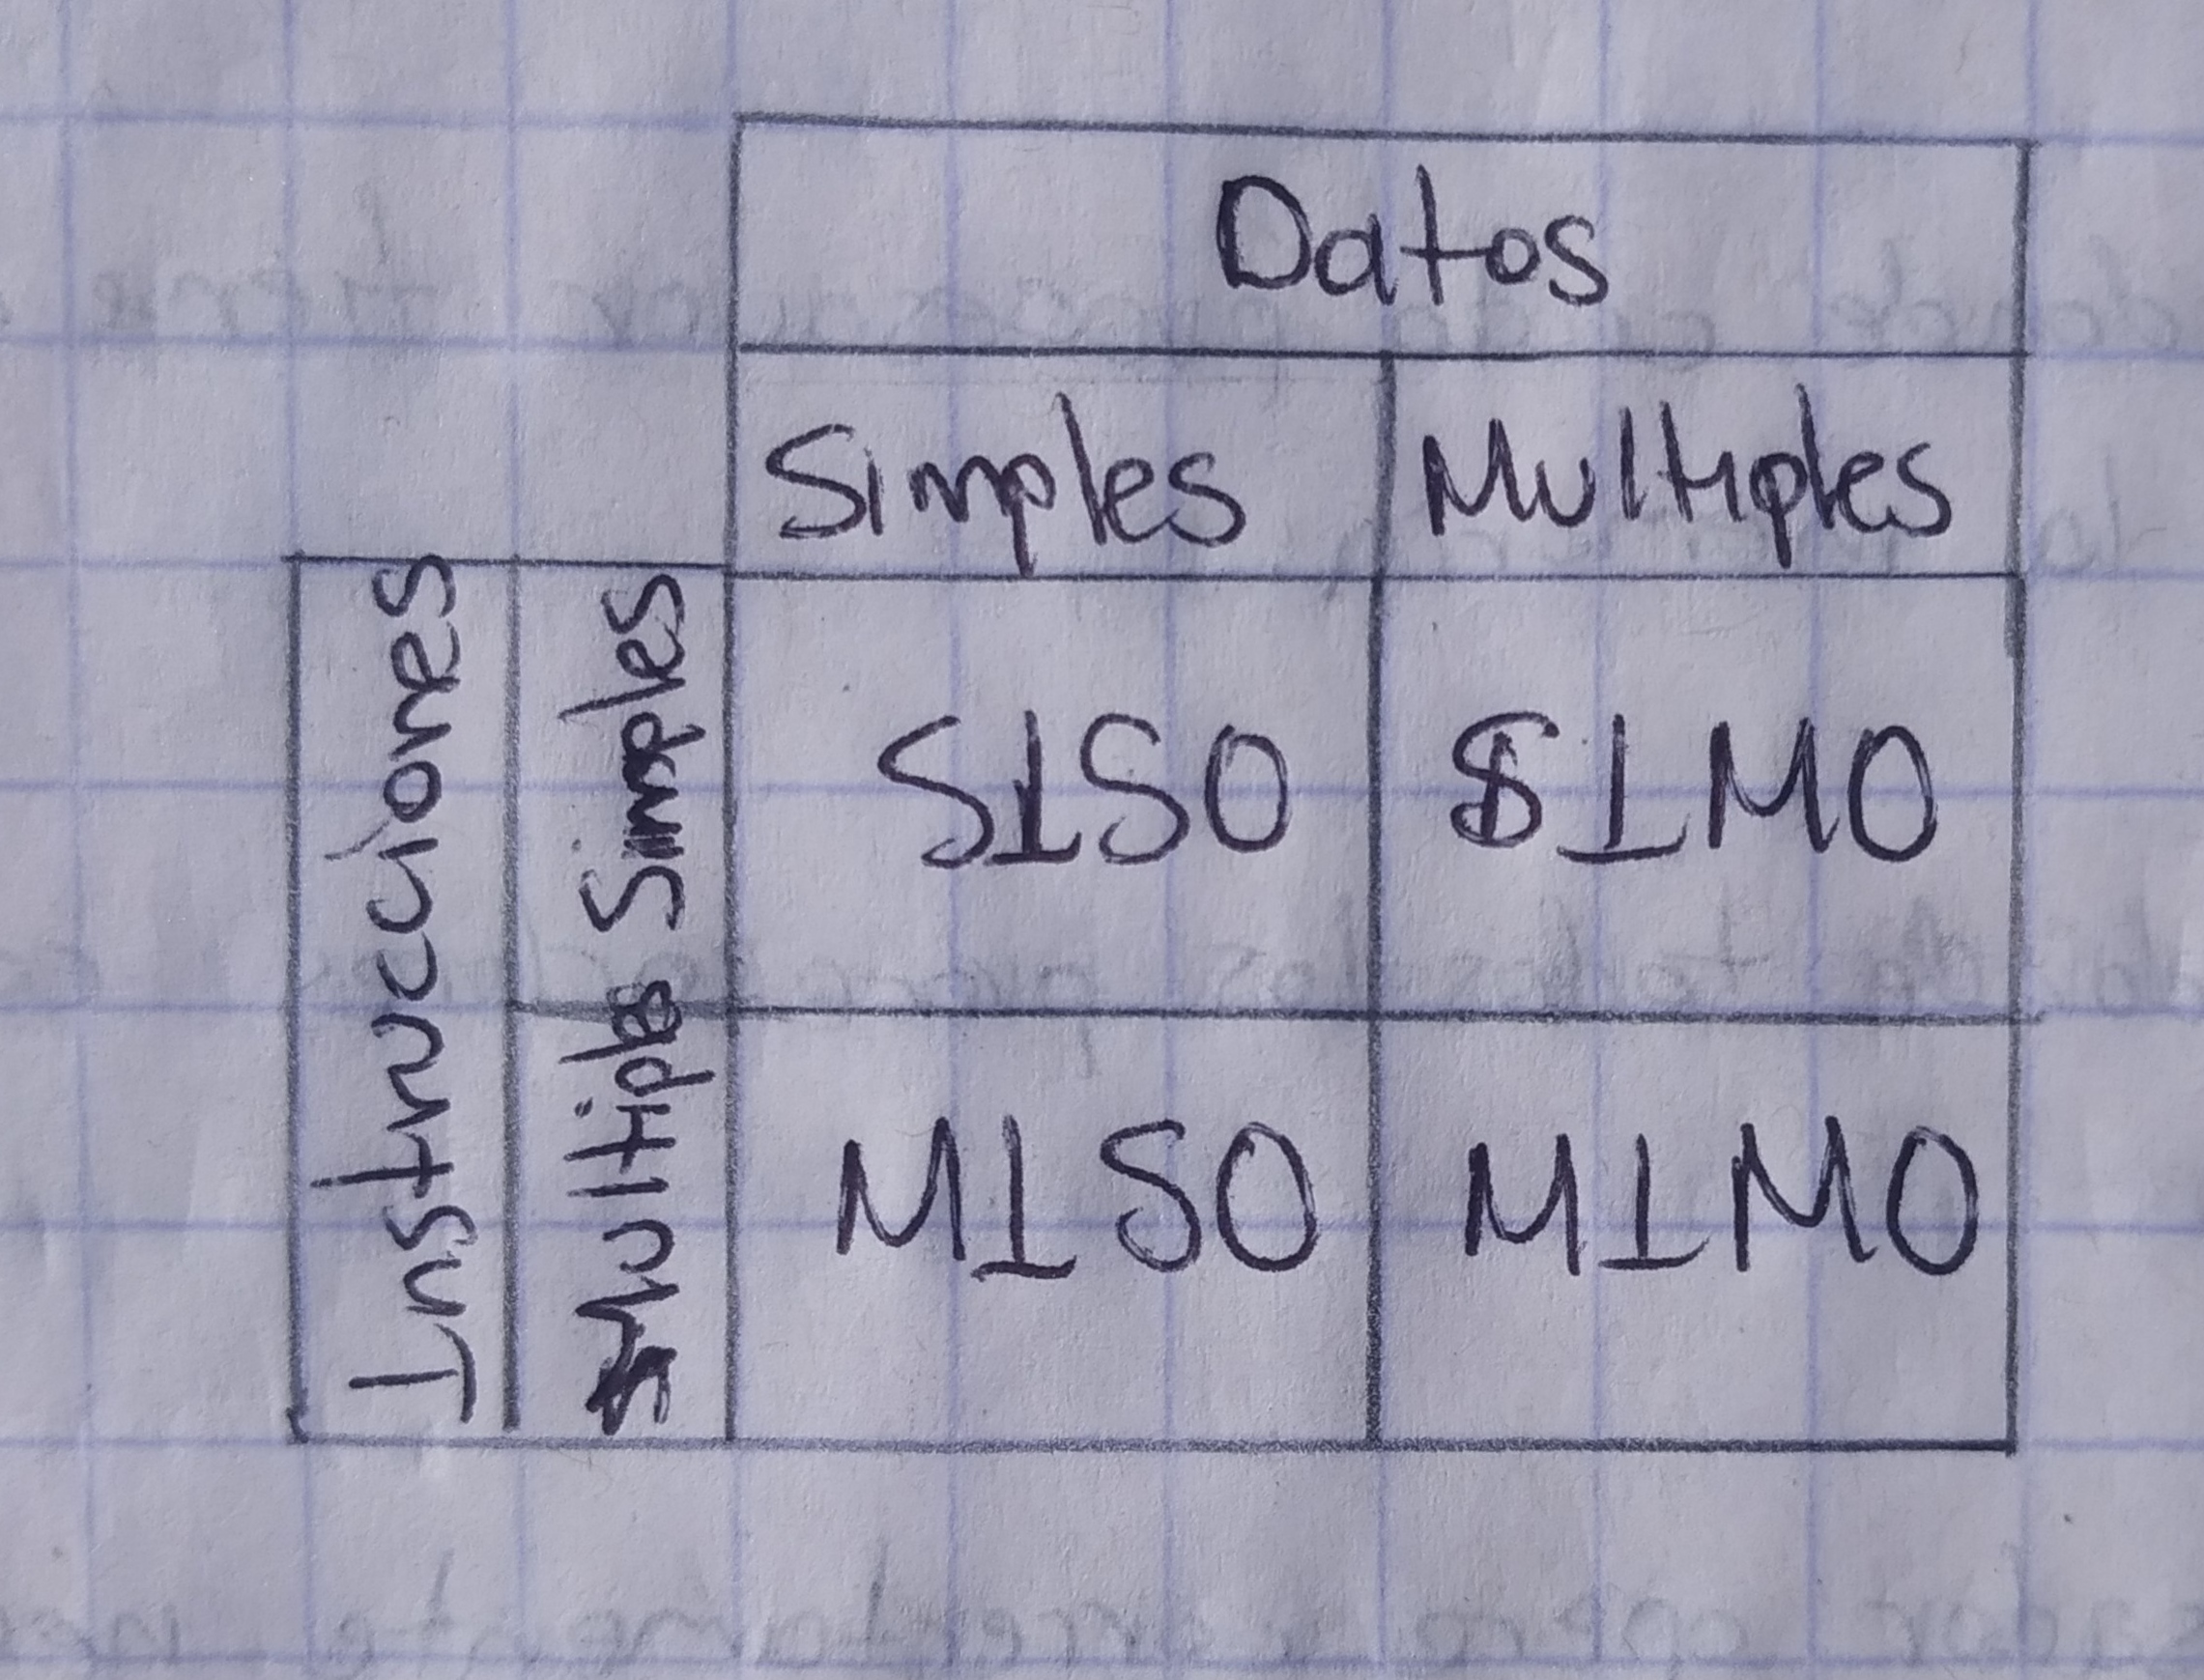 Datos
Simples Multiples
Instrucciones
Simples
SISO SIMO
Multiples
MISO MIMO